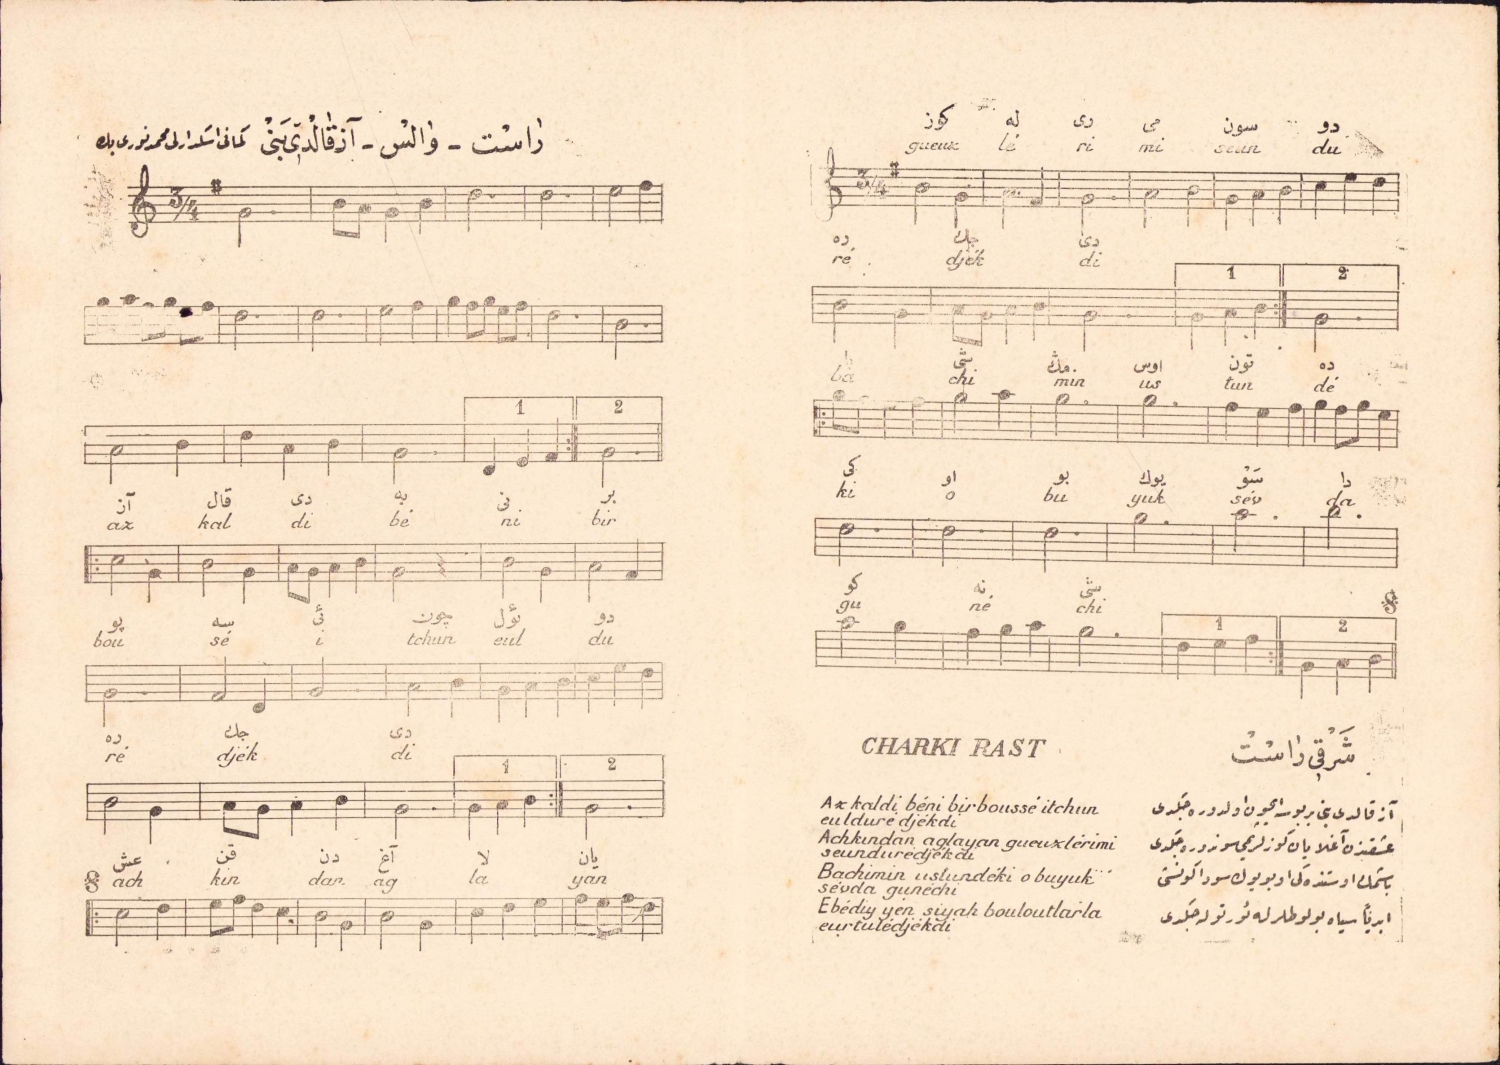 راست - والس - آز قالدى بنى كمانى اسكدارلى محمد نورى بك
3/4
1 2
آز قال دى به نى بر
ax kal di bé ni bir
بو سه ئى چون ئول دو
bou sé i tchun eul du
ره جك دى
ré djék di
1 2
عش قن دن آغ لا يان
ach kin dan ag la yan
كوز له رى مى سون دو
gueux lé ri mi seun du
3/4
ره جك دى
ré djék di
1 2
با شى مڭ اوس تون ده
ba chi min us tun dé
كى او بو يوك سَوْ دا
ki o bu yuk sév da
كو نه شى
gu né chi
1 2
CHARKI RAST
شرقى راست
Ax kaldi béni birboussé itchun
eulduré djékdi
Achkindan aglayan gueuxlérimi
seundurédjékdi
Bachimin ustundéki o buyuk
sévda gunéchi
Ebédiy yén siyah bouloutlarla
eurtulédjékdi
آز قالدى بنى بر بوسه ايچون اولدوره جكدى
عشقندن آغلايان كوزلريمى سوندوره جكدى
باشمڭ اوستنده كى او بويوك سودا كونشى
ابدياً سياه بولوطلرله ئورتوله جكدى